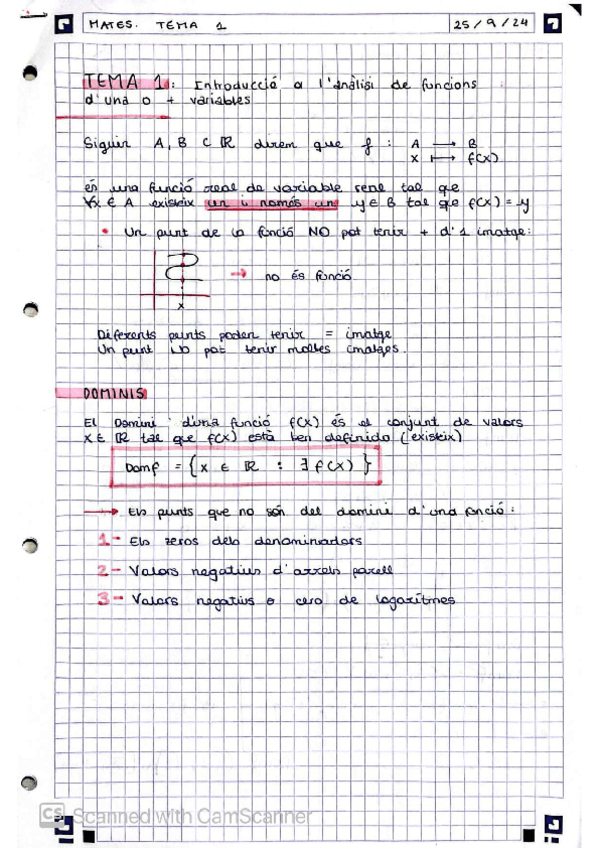 MATES. TEMA 1
25/9/24
TEMA 1: Introducció a l'anàlisi de funcions
d'una o + variables
Siguin A, B ⊂ ℝ direm que f : A → B
x ↦ f(x)
és una funció real de variable real tal que
∀x ∈ A existeix un i només un y ∈ B tal que f(x) = y
• Un punt de la funció NO pot tenir + d'1 imatge:
→ no és funció
x
Diferents punts poden tenir = imatge
Un punt NO pot tenir moltes imatges.
DOMINIS
El Domini d'una funció f(x) és el conjunt de valors
x ∈ ℝ tal que f(x) està ben definida (existeix)
Domf = { x ∈ ℝ : ∃ f(x) }
→ Els punts que no són del domini d'una funció:
1- Els zeros dels denominadors
2- Valors negatius d'arrels parell
3- Valors negatius o cero de logarítmes
CS Scanned with CamScanner